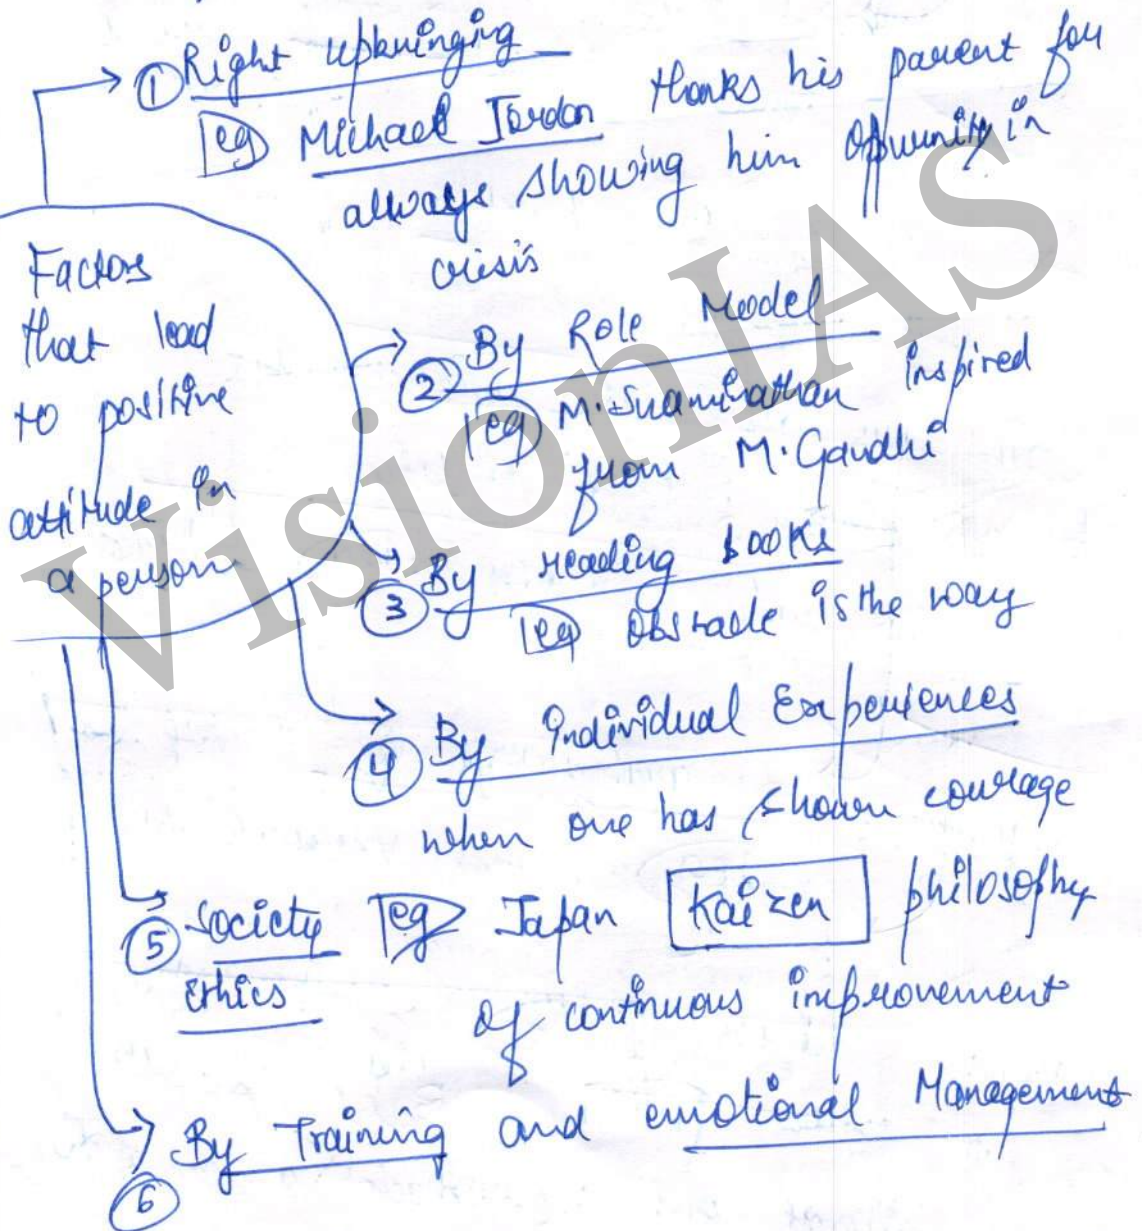 ① Right upbringing
eg Michael Jordon thanks his parent for
always showing him oppunity in
crisis
Factors
that lead
to positive
attitude in
a person
② By Role Model
eg M. Swaminathan inspired
from M. Gandhi
③ By reading books
eg Obstacle is the way
④ By individual Experiences
when one has shown courage
⑤ Society eg Japan Kaizen philosophy
Ethics of continuous improvement
⑥ By Training and emotional Management
VisionIAS